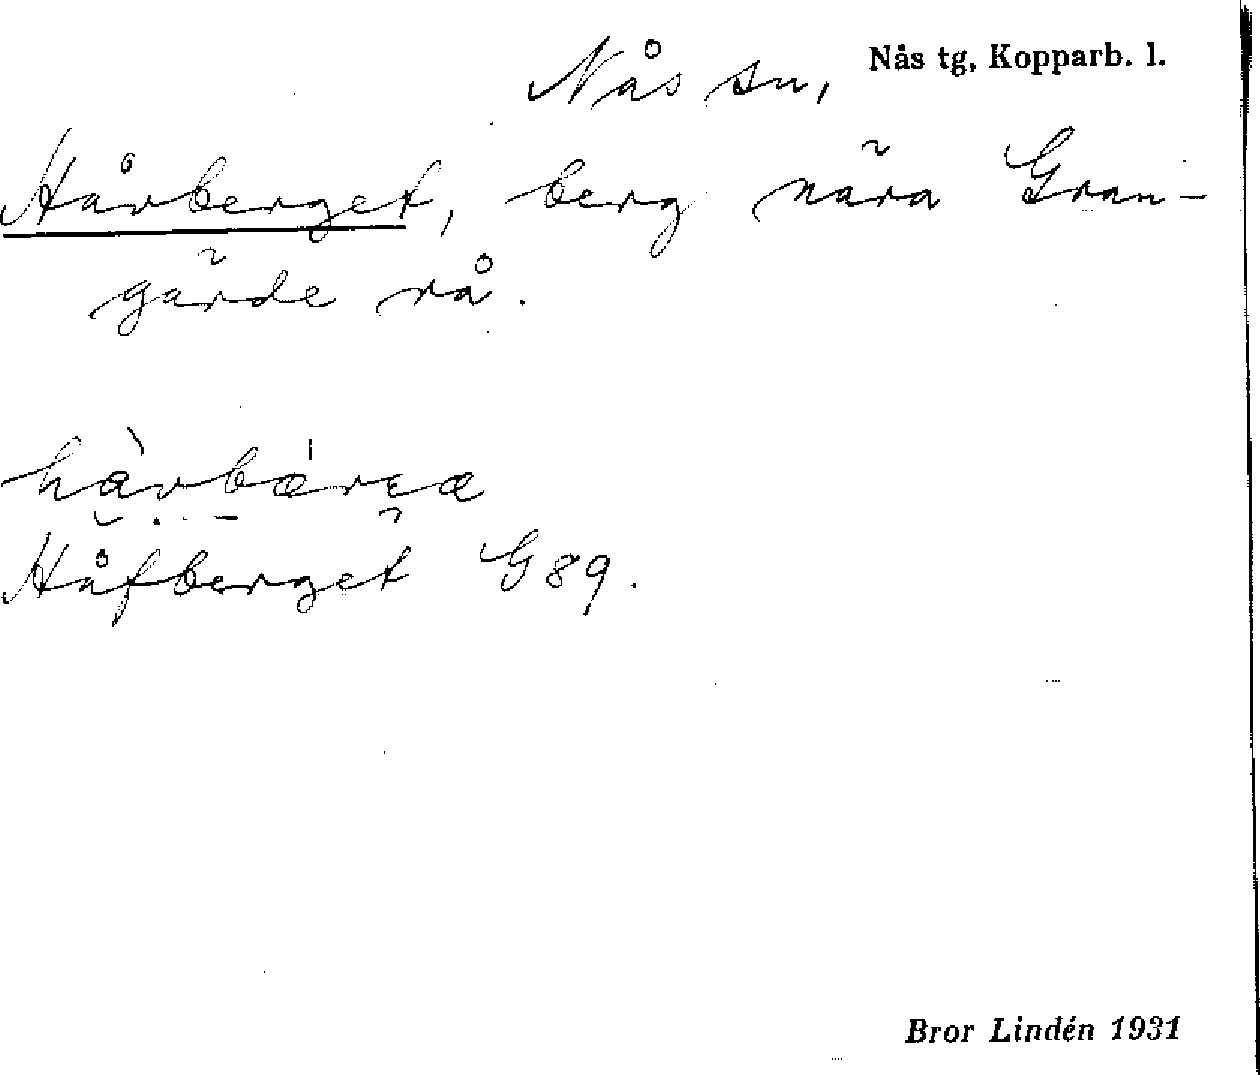 Nås sn, Nås tg, Kopparb. l.
Håvberget, berg nära Gran-
gärde rå.
Håfberget G 89.
Bror Lindén 1931